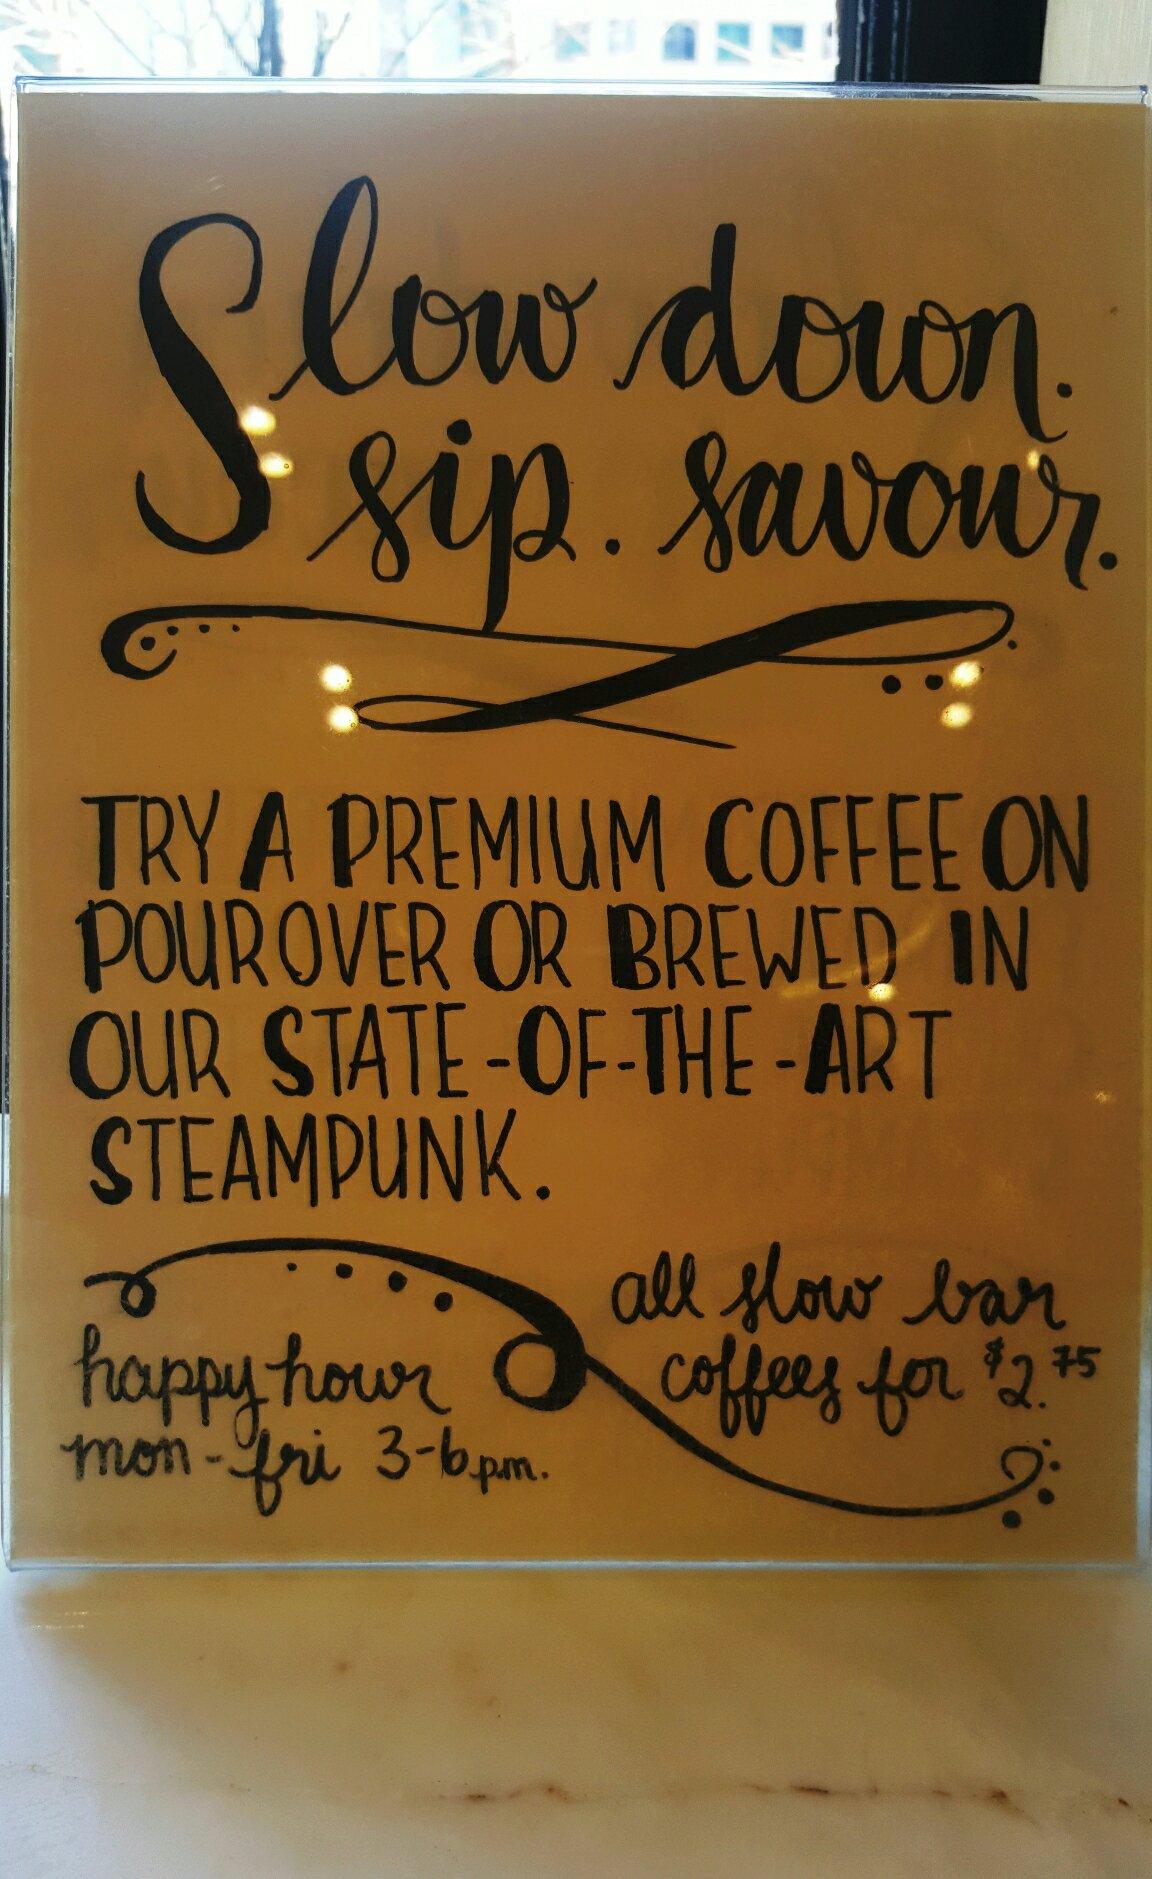 Slow down.
sip. savour.
TRY A PREMIUM COFFEE ON
POUROVER OR BREWED IN
OUR STATE-OF-THE-ART
STEAMPUNK.
happy hour
mon-fri 3-6p.m.
all slow bar
coffees for $2.75